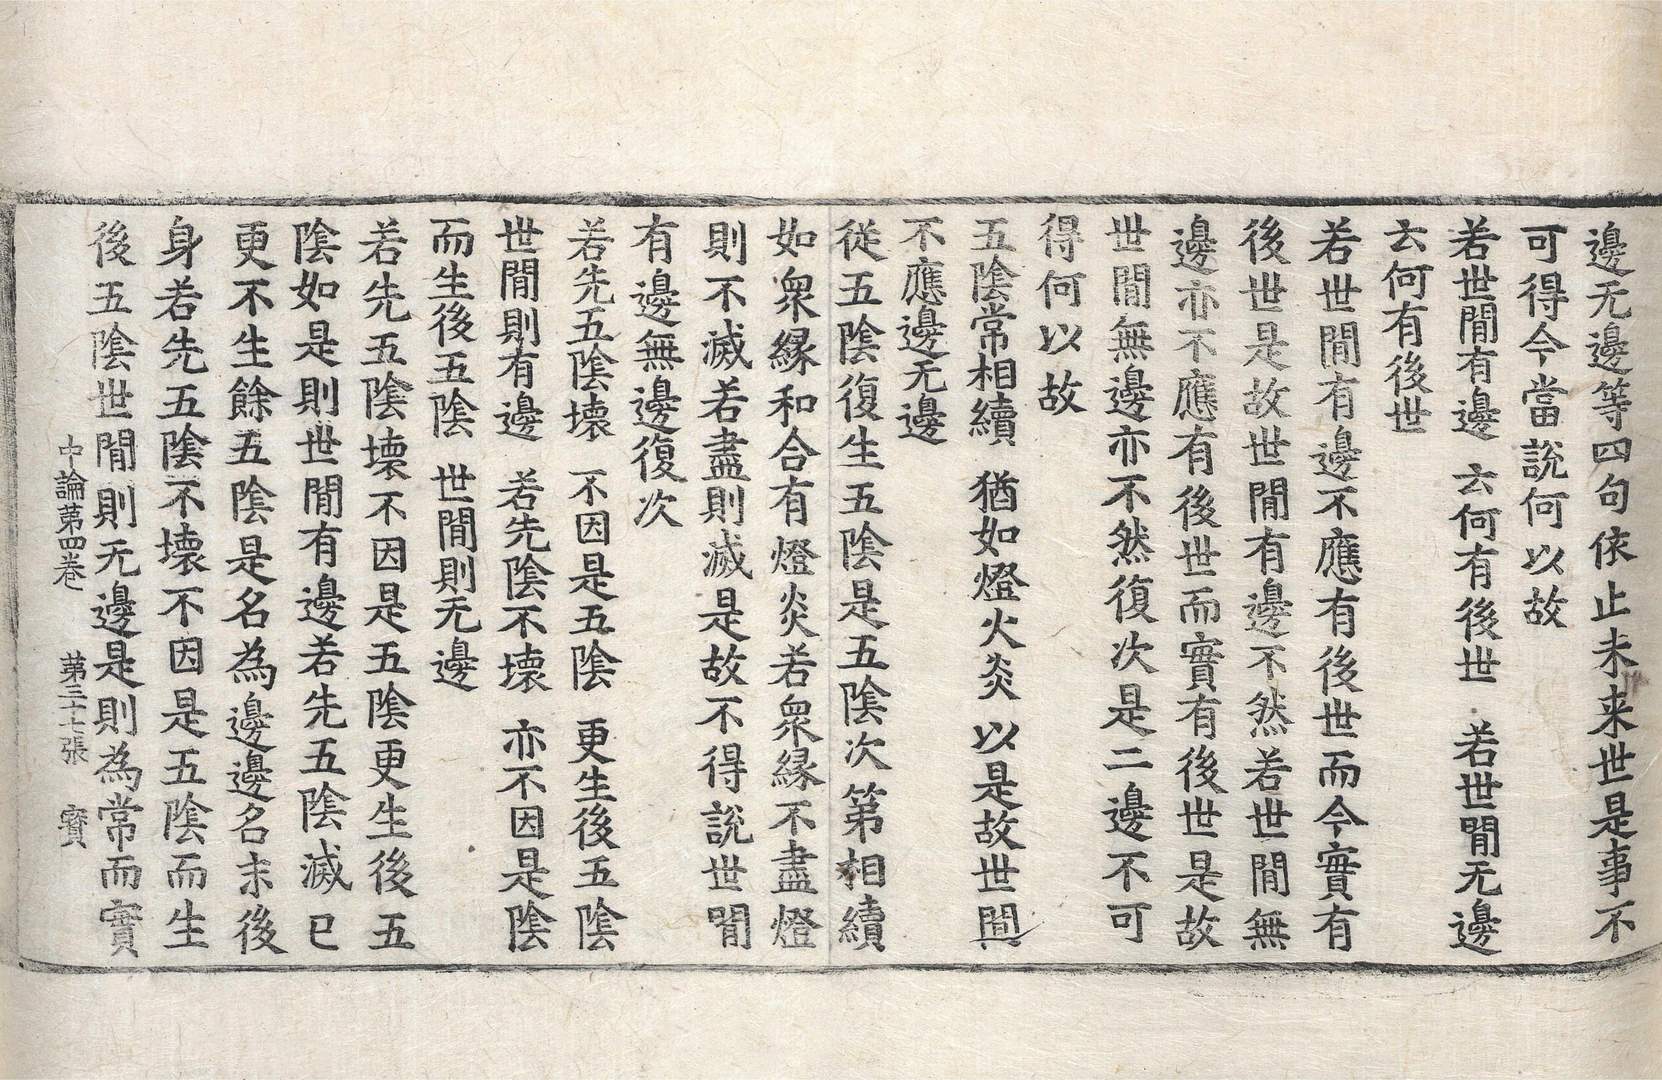 邊无邊等四句依止未来世是事不
可得今當說何以故
若世閒有邊 云何有後世 若世閒无邊
云何有後世
若世閒有邊不應有後世而今實有
後世是故世閒有邊不然若世閒無
邊亦不應有後世而實有後世是故
世閒無邊亦不然復次是二邊不可
得何以故
五陰常相續 猶如燈火炎 以是故世閒
不應邊无邊
従五陰復生五陰是五陰次第相續
如衆緣和合有燈炎若衆緣不盡燈
則不滅若盡則滅是故不得說世閒
有邊無邊復次
若先五陰壞 不因是五陰 更生後五陰
世閒則有邊 若先陰不壞 亦不因是陰
而生後五陰 世閒則无邊
若先五陰壞不因是五陰更生後五
陰如是則世閒有邊若先五陰滅已
更不生餘五陰是名為邊邊名末後
身若先五陰不壞不因是五陰而生
後五陰世閒則无邊是則為常而實
中論第四卷 第三十七張 寳